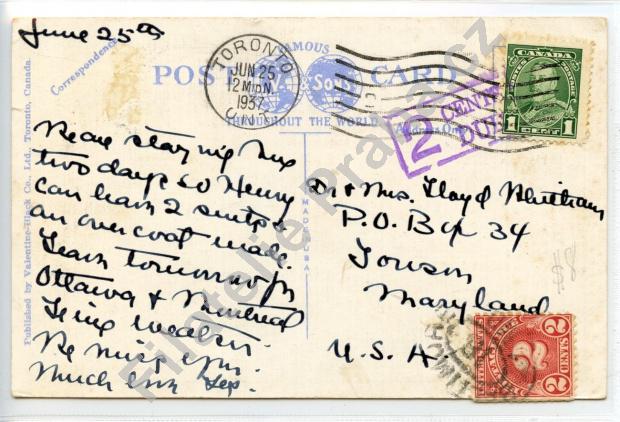 June 25th
Correspondence
FAMOUS
POST CARD
THROUGHOUT THE WORLD
Address Only
TORONTO
JUN 25
12 MID.N.
1937
ONT.
2 CENTS
DUE
CANADA
POSTES POSTAGE
1 CENT 1
Published by Valentine-Black Co., Ltd., Toronto, Canada.
MADE IN U.S.A.
We are staying here
two days so Henry
can have 2 suits &
an overcoat made.
Leave tomorrow for
Ottawa & Montreal
Fine weather.
We miss you.
Much love
Dr & Mrs. Lloyd
P.O. Box 34
Towson
Maryland
U.S.A.
$8
2
2 CENTS 2
Filatelie Praga.cz